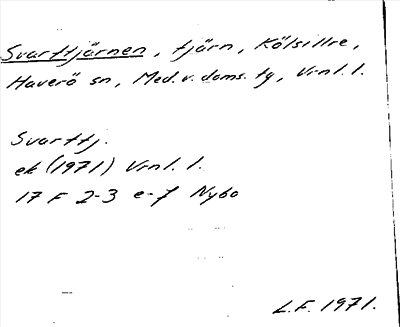 Svarttjärnen, tjärn, Kölsillre,
Haverö sn, Med. v. doms. tg, Vrnl. l.
Svarttj.
ek (1971) Vrnl. l.
17 F 2-3 e-f Nybo
L.F. 1971.